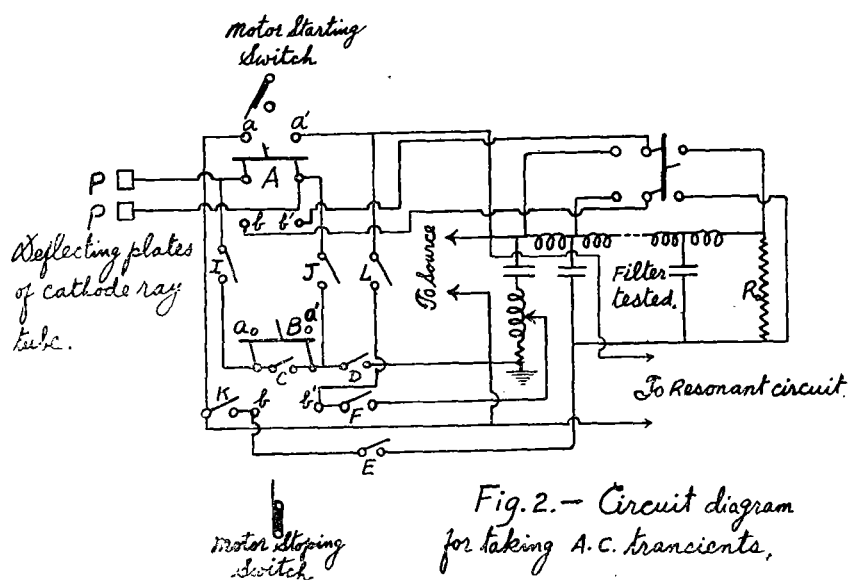 Motor Starting
Switch
a a'
P
A
P
b b'
Deflecting plates
of cathode ray
tube.
I
J
L
To Source
Filter
tested.
R
a B a'
C
D
K
b
b'
F
E
To Resonant circuit.
Motor Stoping
Switch
Fig. 2.— Circuit diagram
for taking A.C. trancients,